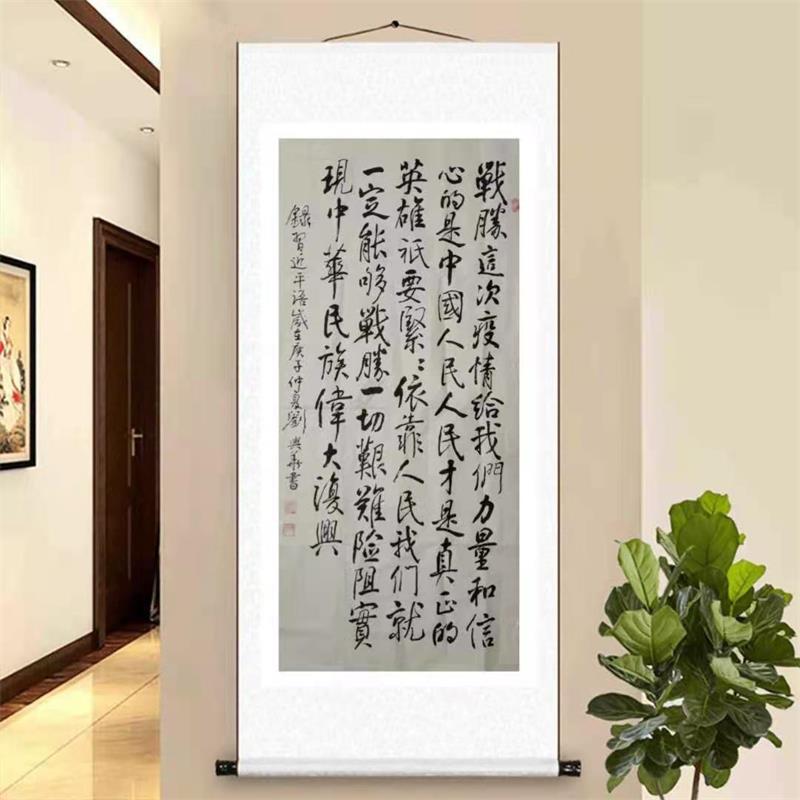 戰勝這次疫情給我們力量和信
心的是中國人民人民才是真正的
英雄祇要緊緊依靠人民我们就
一定能够戰勝一切艱難险阻實
現中華民族偉大復興
錄習近平語歲在庚子仲夏劉興華書